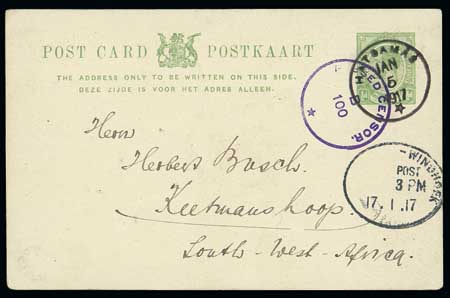 POST CARD POSTKAART
THE ADDRESS ONLY TO BE WRITTEN ON THIS SIDE.
DEZE ZIJDE IS VOOR HET ADRES ALLEEN.
HATSAMAS
JAN
5
1917
CENSOR.
B
100
WINDHOEK
POST
3 PM
17. 1. 17
Herrn
Herbert Busch.
Keetmanshoop.
South-West-Africa.